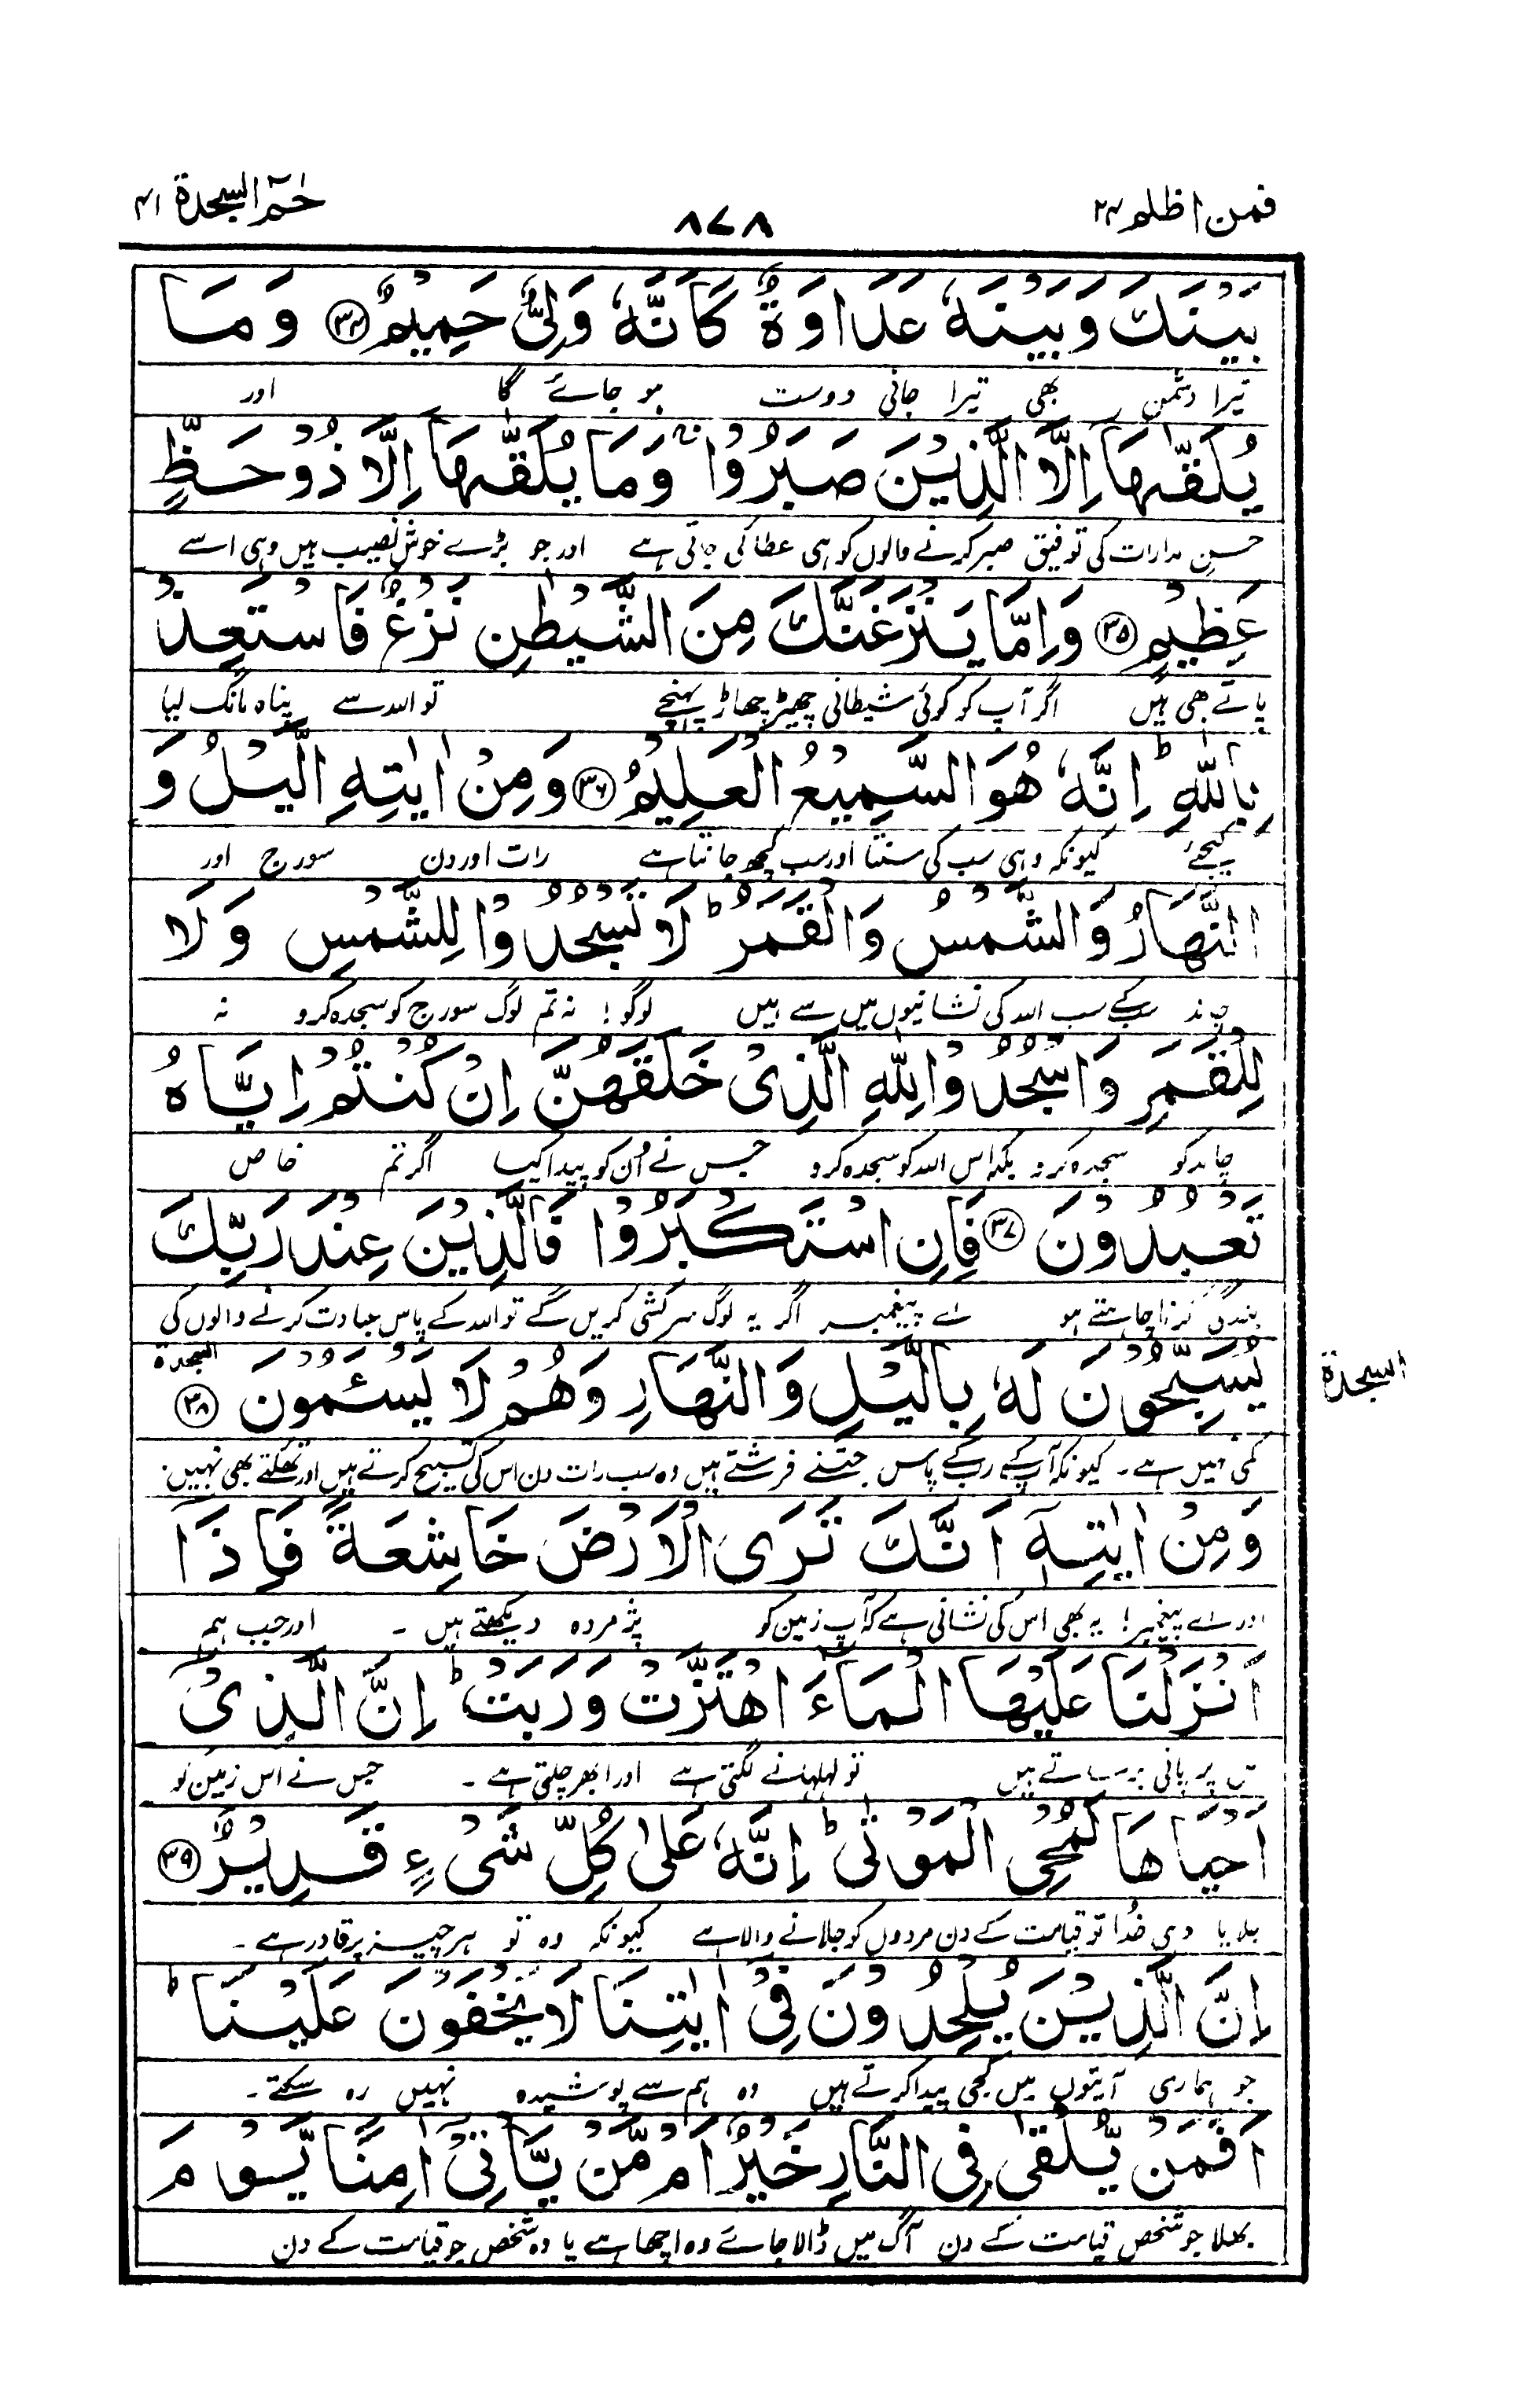 فمن اظلم ۲۴
۸۷۸
حٰمٓ السجدة ۴۱
بَيْنَكَ وَبَيْنَهٗ عَدَاوَةٌ كَاَنَّهٗ وَلِيٌّ حَمِيْمٌ ﴿۳۴﴾ وَمَا
تیرا دشمن بھی تیرا جانی دوست ہو جائے گا اور
يُلَقّٰىهَاۤ اِلَّا الَّذِيْنَ صَبَرُوْا ۚ وَمَا يُلَقّٰىهَاۤ اِلَّا ذُوْ حَظٍّ
حسن مدارات کی توفیق صبر کرنے والوں کو ہی عطا کی جاتی ہے اور جو بڑے خوش نصیب ہیں وہی اسے
عَظِيْمٍ ﴿۳۵﴾ وَاِمَّا يَنْزَغَنَّكَ مِنَ الشَّيْطٰنِ نَزْغٌ فَاسْتَعِذْ
پاتے بھی ہیں اگر آپ کو کوئی شیطانی چھیڑ چھاڑ پہنچے تو اللہ سے پناہ مانگ لیا
بِاللّٰهِ ؕ اِنَّهٗ هُوَ السَّمِيْعُ الْعَلِيْمُ ﴿۳۶﴾ وَمِنْ اٰيٰتِهِ الَّيْلُ وَ
کیجئے کیونکہ وہی سب کی سنتا اور سب کچھ جانتا ہے رات اور دن سورج اور
النَّهَارُ وَالشَّمْسُ وَالْقَمَرُ ؕ لَا تَسْجُدُوْا لِلشَّمْسِ وَلَا
چاند سب کے سب اللہ کی نشانیوں میں سے ہیں لوگو! نہ تم لوگ سورج کو سجدہ کرو نہ
لِلْقَمَرِ وَاسْجُدُوْا لِلّٰهِ الَّذِيْ خَلَقَهُنَّ اِنْ كُنْتُمْ اِيَّاهُ
چاند کو سجدہ کرو بلکہ اس اللہ کو سجدہ کرو جس نے اُن کو پیدا کیا اگر تم خاص
تَعْبُدُوْنَ ﴿۳۷﴾ فَاِنِ اسْتَكْبَرُوْا فَالَّذِيْنَ عِنْدَ رَبِّكَ
بندگی کرنا چاہتے ہو اے پیغمبر اگر یہ لوگ سرکشی کریں گے تو اللہ کے پاس عبادت کرنے والوں کی
يُسَبِّحُوْنَ لَهٗ بِالَّيْلِ وَالنَّهَارِ وَهُمْ لَا يَسْئَمُوْنَ ﴿۳۸﴾ السجدة
السجدة
کمی نہیں ہے۔ کیونکہ آپ کے رب کے پاس جتنے فرشتے ہیں وہ سب رات دن اس کی تسبیح کرتے ہیں اور تھکتے بھی نہیں۔
وَمِنْ اٰيٰتِهٖۤ اَنَّكَ تَرَى الْاَرْضَ خَاشِعَةً فَاِذَاۤ
اور اے پیغمبر! یہ بھی اس کی نشانی ہے کہ آپ زمین کو پژمردہ دیکھتے ہیں ۔ اور جب ہم
اَنْزَلْنَا عَلَيْهَا الْمَآءَ اهْتَزَّتْ وَرَبَتْ ؕ اِنَّ الَّذِيْۤ
پر پانی برساتے ہیں تو لہلہانے لگتی ہے اور ابھر چلتی ہے ۔ جس نے اس زمین کو
اَحْيَاهَا لَمُحْيِ الْمَوْتٰى ؕ اِنَّهٗ عَلٰى كُلِّ شَيْءٍ قَدِيْرٌ ﴿۳۹﴾
جلا دی خدا تو قیامت کے دن مردوں کو جلانے والا ہے کیونکہ وہ تو ہر چیز پر قادر ہے ۔
اِنَّ الَّذِيْنَ يُلْحِدُوْنَ فِيْۤ اٰيٰتِنَا لَا يَخْفَوْنَ عَلَيْنَا ؕ
جو ہماری آیتوں میں کجی پیدا کرتے ہیں وہ ہم سے پوشیدہ نہیں رہ سکتے۔
اَفَمَنْ يُّلْقٰى فِي النَّارِ خَيْرٌ اَمْ مَّنْ يَّاْتِيْۤ اٰمِنًا يَّوْمَ
بھلا جو شخص قیامت کے دن آگ میں ڈالا جائے وہ اچھا ہے یا وہ شخص جو قیامت کے دن